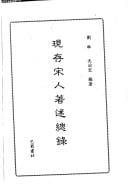 劉琳 沈治宏 編著
現存宋人著述總錄
巴蜀書社